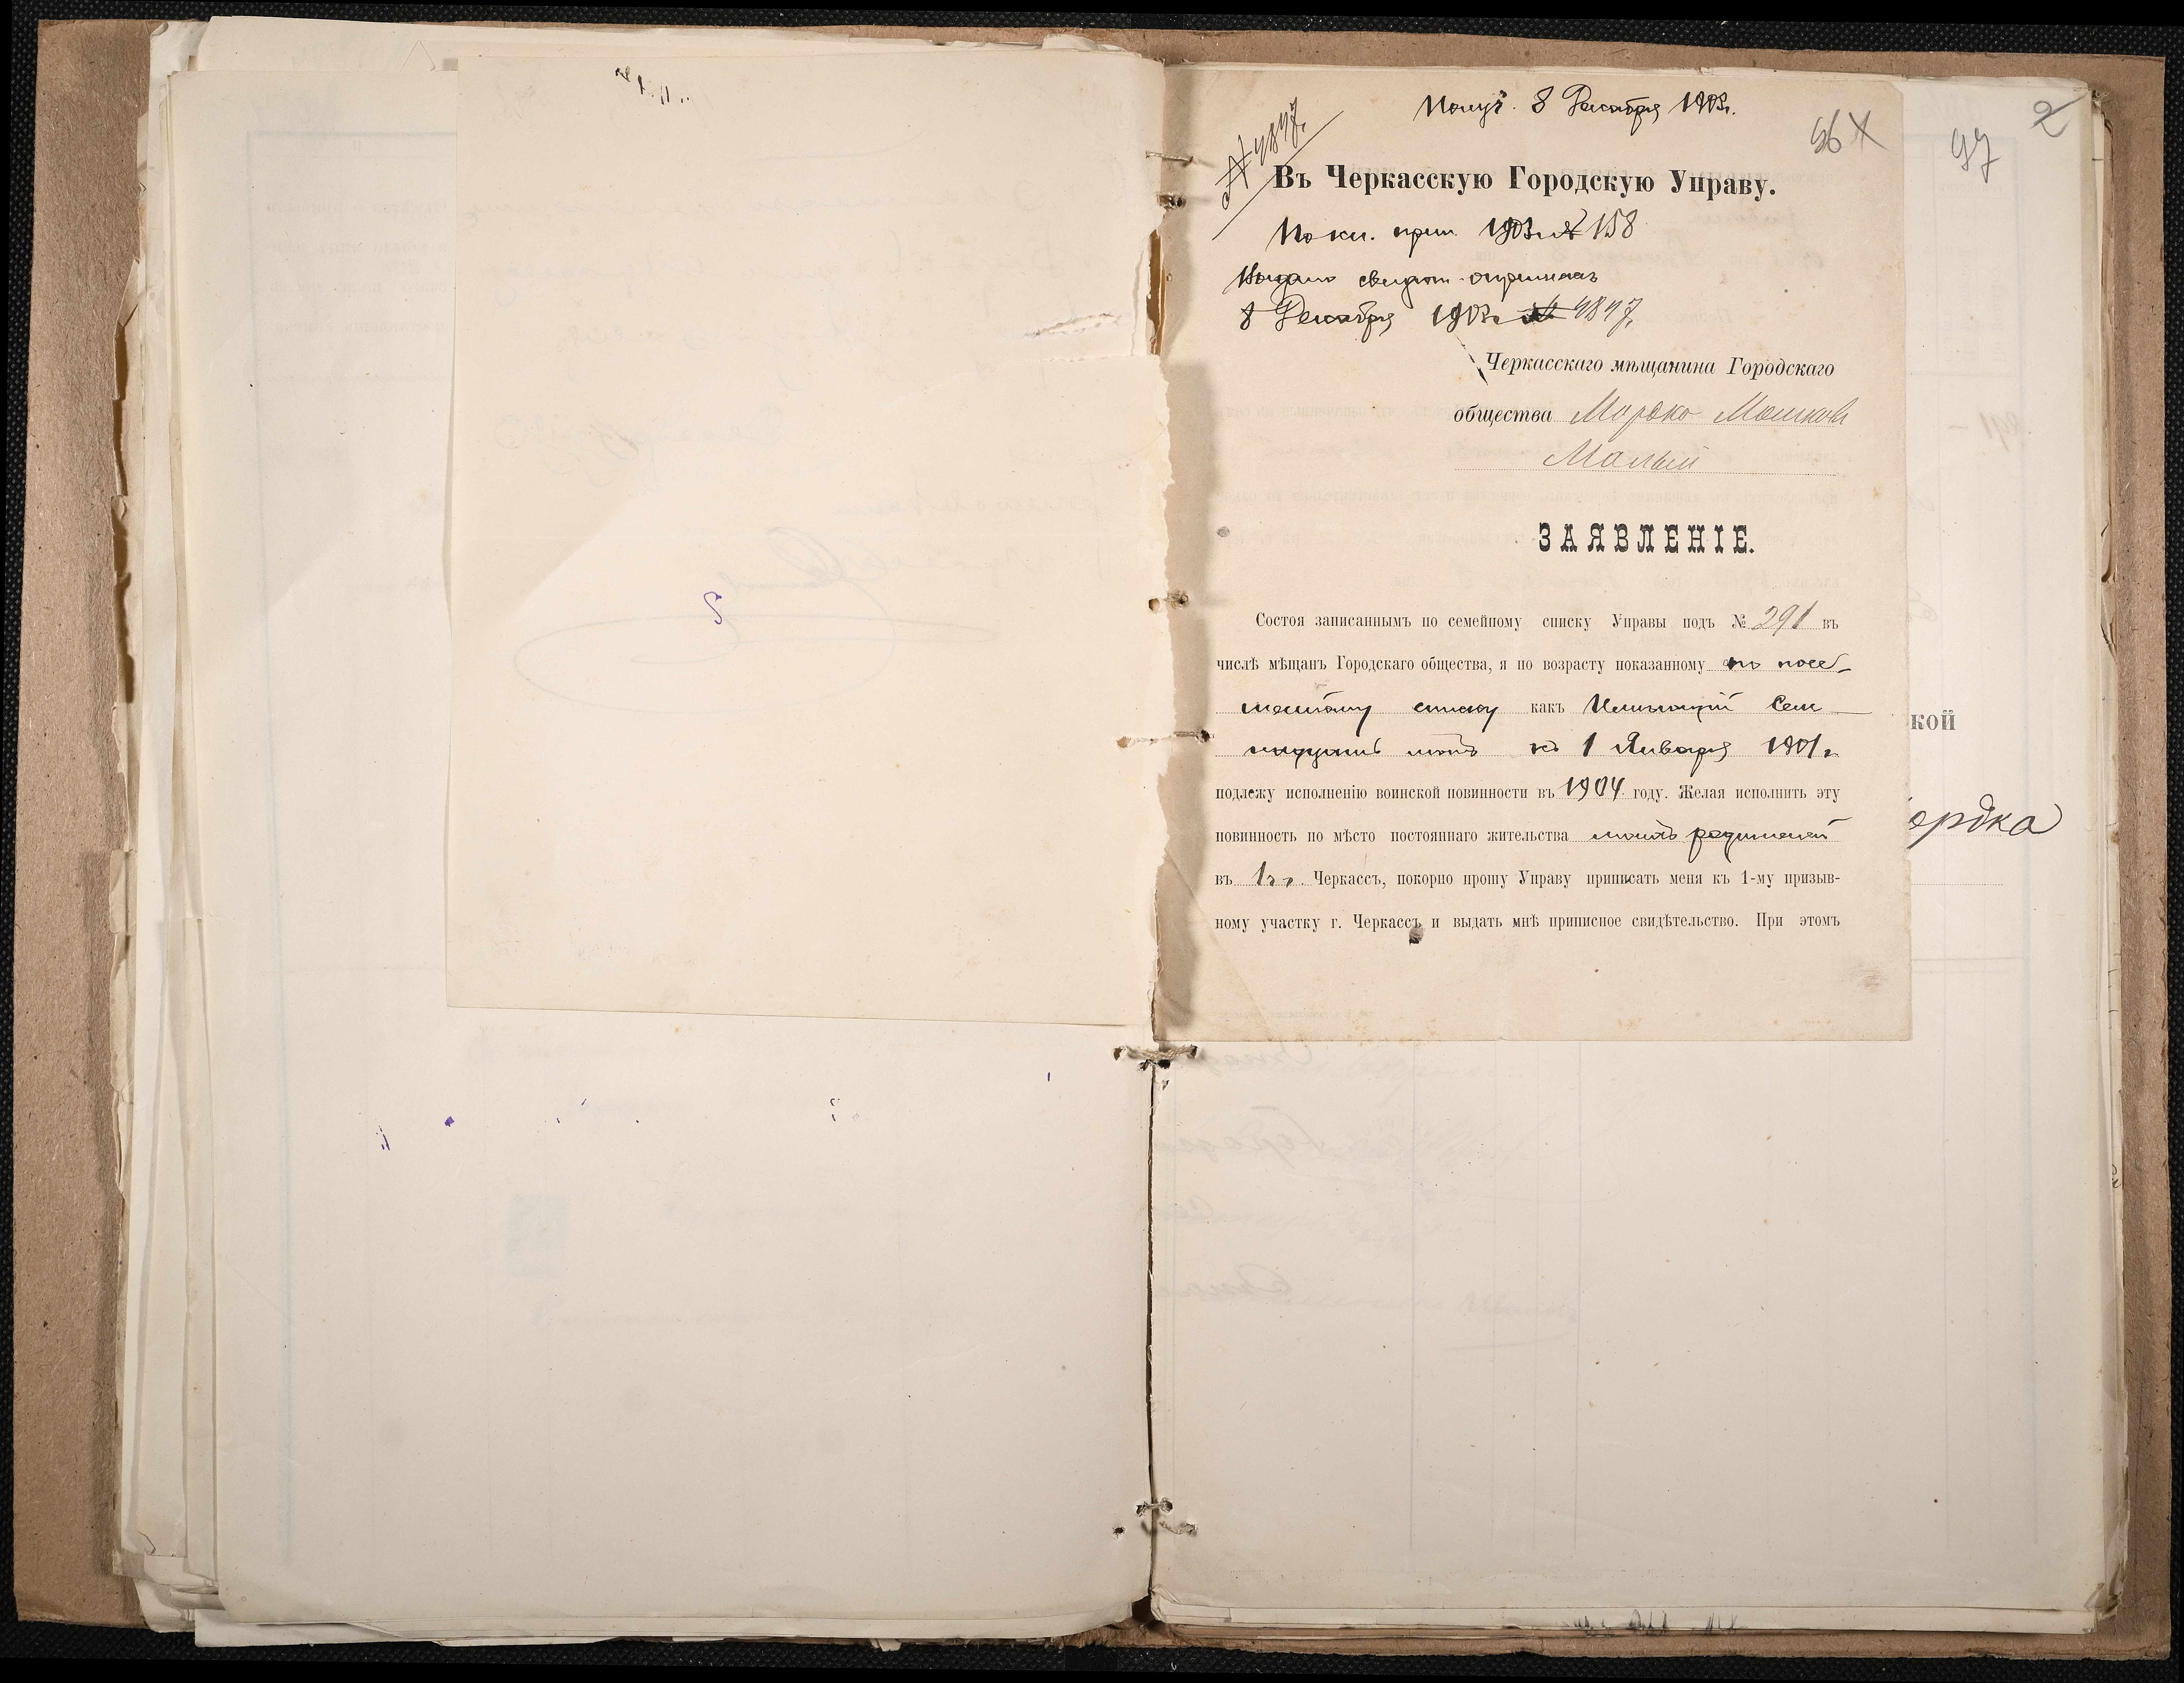 Получ. 8 Декабря 1903г.
№ 4847.
96 X
97
2
Въ Черкасскую Городскую Управу.
По кн. прип. 1903 г. № 158
Выдано свидѣт. о припискѣ
8 Декабря 1903 г. № 4847.
Черкасскаго мѣщанина Городскаго
общества Мордко Мошковъ
Малый
ЗАЯВЛЕНІЕ.
Состоя записаннымъ по семейному списку Управы подъ № 291 въ
числѣ мѣщанъ Городскаго общества, я по возрасту показанному по посе-
мейному списку какъ Имѣющій Сем-
надцать лѣтъ къ 1 Января 1901 г.
подлежу исполненію воинской повинности въ 1904 году. Желая исполнить эту
повинность по мѣсто постояннаго жительства моихъ родителей
въ г. Черкассъ, покорно прошу Управу приписать меня къ 1-му призыв-
ному участку г. Черкассъ и выдать мнѣ приписное свидѣтельство. При этомъ
кой
ордка